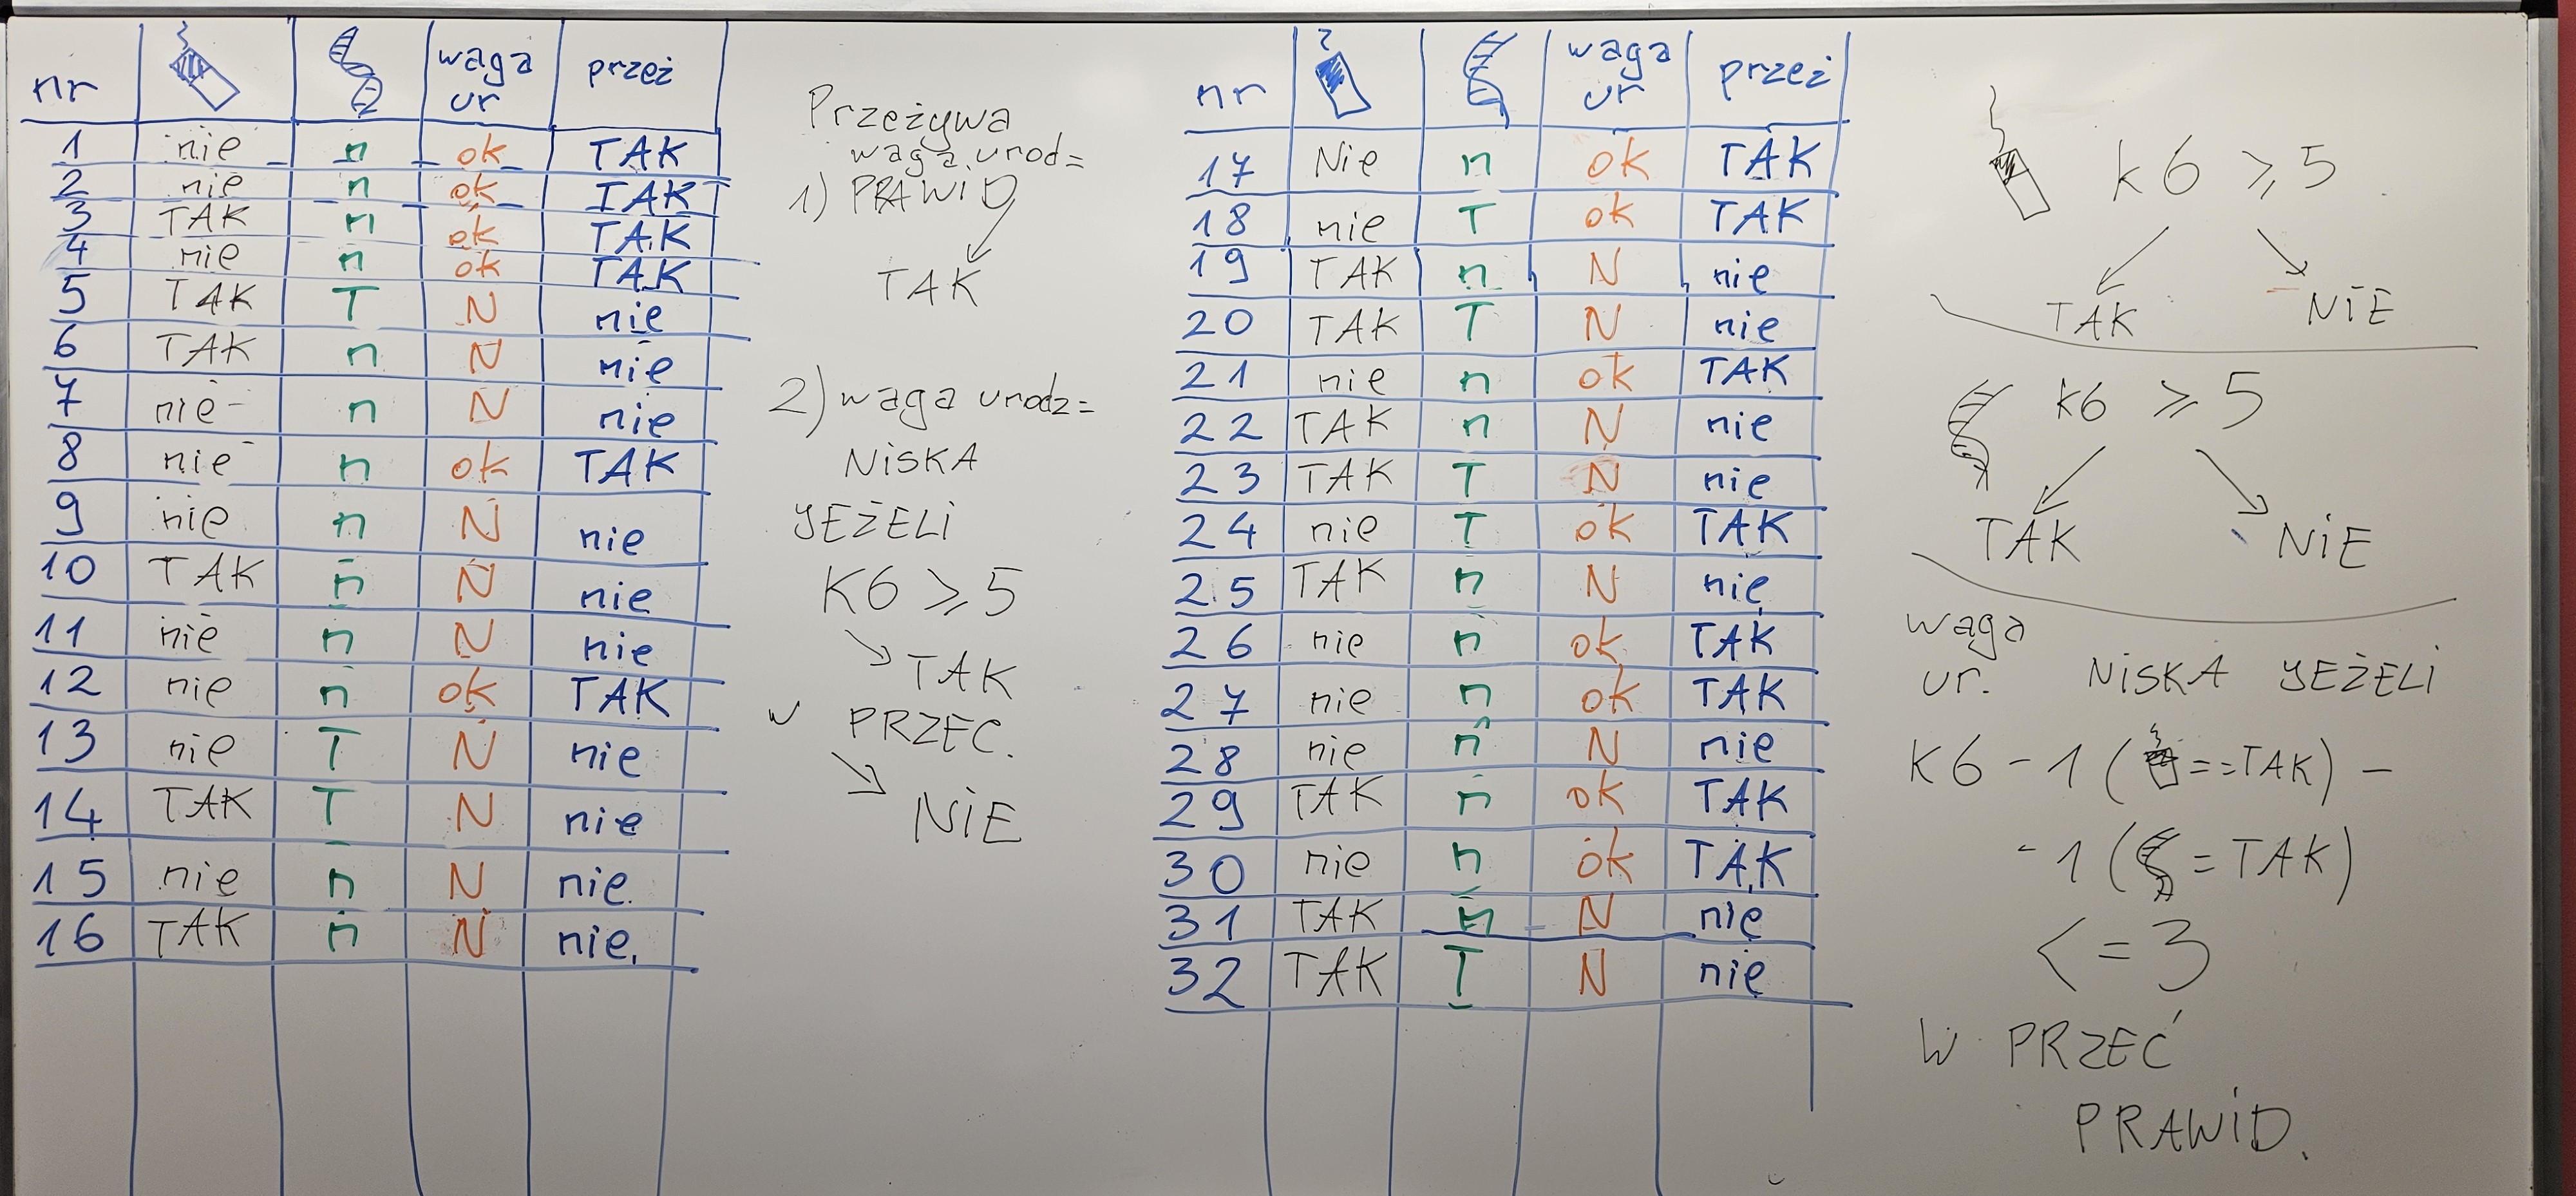 nr waga ur przeż
1 nie n ok TAK
2 nie n ok TAK
3 TAK n ok TAK
4 nie n ok TAK
5 TAK T N nie
6 TAK n N nie
7 nie n N nie
8 nie n ok TAK
9 nie n N nie
10 TAK n N nie
11 nie n N nie
12 nie n ok TAK
13 nie T N nie
14 TAK T N nie
15 nie n N nie
16 TAK n N nie
Przeżywa
waga urod=
1) PRAWID
TAK
2) waga urodz=
NISKA
JEŻELI
K6 ≥ 5
TAK
W PRZEC.
NIE
nr waga ur przeż
17 Nie n ok TAK
18 nie T ok TAK
19 TAK n N nie
20 TAK T N nie
21 nie n ok TAK
22 TAK n N nie
23 TAK T N nie
24 nie T ok TAK
25 TAK n N nie
26 nie n ok TAK
27 nie n ok TAK
28 nie n N nie
29 TAK n ok TAK
30 nie n ok TAK
31 TAK n N nie
32 TAK T N nie
k6 ≥ 5
TAK NIE
k6 ≥ 5
TAK NIE
waga
ur. NISKA JEŻELI
K6 - 1 ( == TAK) -
- 1 ( = TAK)
<= 3
W PRZEĆ
PRAWID.